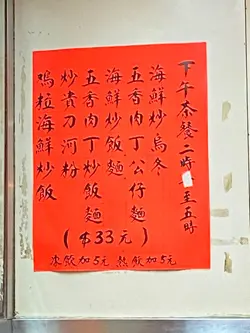 下午茶餐二時至五時
海鮮炒烏冬
五香肉丁公仔麵
海鮮炒飯麵
五香肉丁炒飯麵
炒貴刀河粉
鷄粒海鮮炒飯
($33元)
冰飲加5元 熱飲加5元